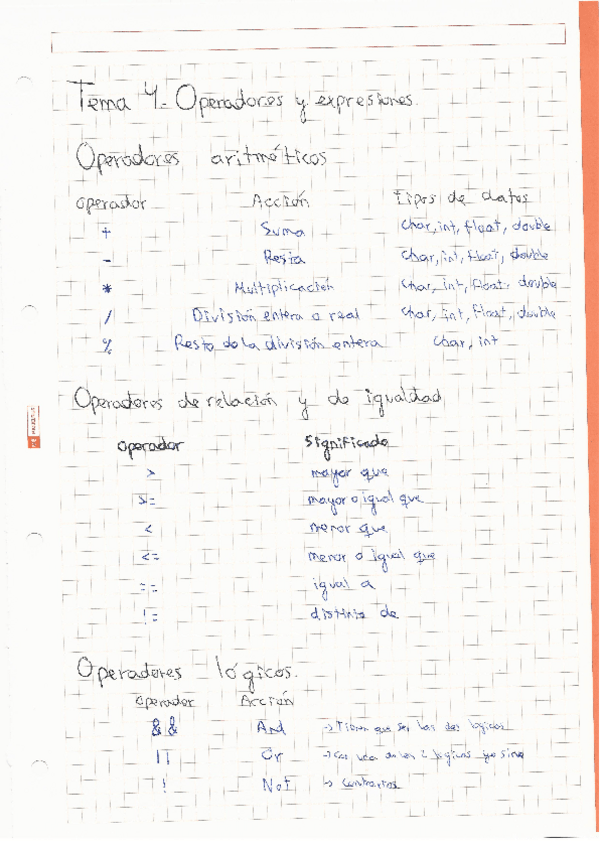 Tema 4. Operadores y expresiones.
Operadores aritméticos
operador Acción Tipos de datos
+ Suma char, int, float, double
- Resta char, int, float, double
* Multiplicación char, int, float, double
/ División entera o real char, int, float, double
% Resto de la división entera char, int
Operadores de relación y de igualdad
operador Significado
> mayor que
>= mayor o igual que
< menor que
<= menor o igual que
== igual a
!= distinto de
Operadores lógicos.
operador Acción
&& And → Tienen que ser las dos lógicas
|| Or → Con una de las 2 lógicas
! Not → Contrarios